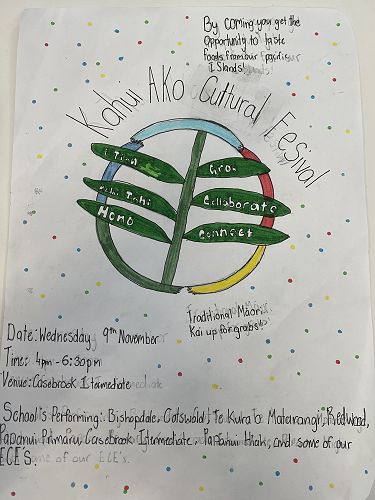 By coming you get the
opportunity to taste
foods from our pacific
Islands!
Kahui Ako Cultural Fesival
Grow
Mahi Tahi
Collaborate
Hono
Connect
Traditional Maori
Kai up for grabs
Date: Wednesday 9th November
Time: 4pm-6:30pm
Venue: Casebrook Itermediate
School's Performing: Bishopdale, Cotswold, Te Kura o Matarangi, Redwood,
Papanui Primary, Casebrook Itermediate, Papanui High, and some of our
ECE'S.